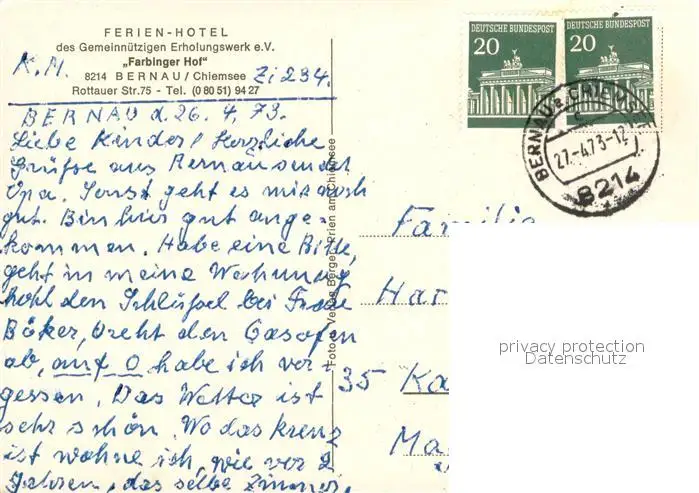 FERIEN-HOTEL
des Gemeinnützigen Erholungswerk e.V.
„Farbinger Hof"
8214 BERNAU/Chiemsee
Rottauer Str.75 - Tel. (0 80 51) 94 27
K.M.
Zi 234.
BERNAU d. 26.4.73.
Liebe Kinder! Herzliche
Grüße aus Bernau sendet
Opa. Sonst geht es mir noch
gut. Bin hier gut ange-
kommen. Habe eine Bitte,
geht in meine Wohnung
hohl den Schlüssel bei Frau
Böker, dreht den Gasofen
ab, auf 0 habe ich ver-
gessen. Das Wetter ist
sehr schön. Wo das kreuz
ist wohne ich, wie vor 2
Jahren, das selbe Zimmer,
Foto u. Verlag Berger, Prien am Chiemsee
DEUTSCHE BUNDESPOST
20
DEUTSCHE BUNDESPOST
20
BERNAU a. CHIEMSEE
27.-4.73-12
8214
Familie
Har
35 Ka
Ma
privacy protection
Datenschutz